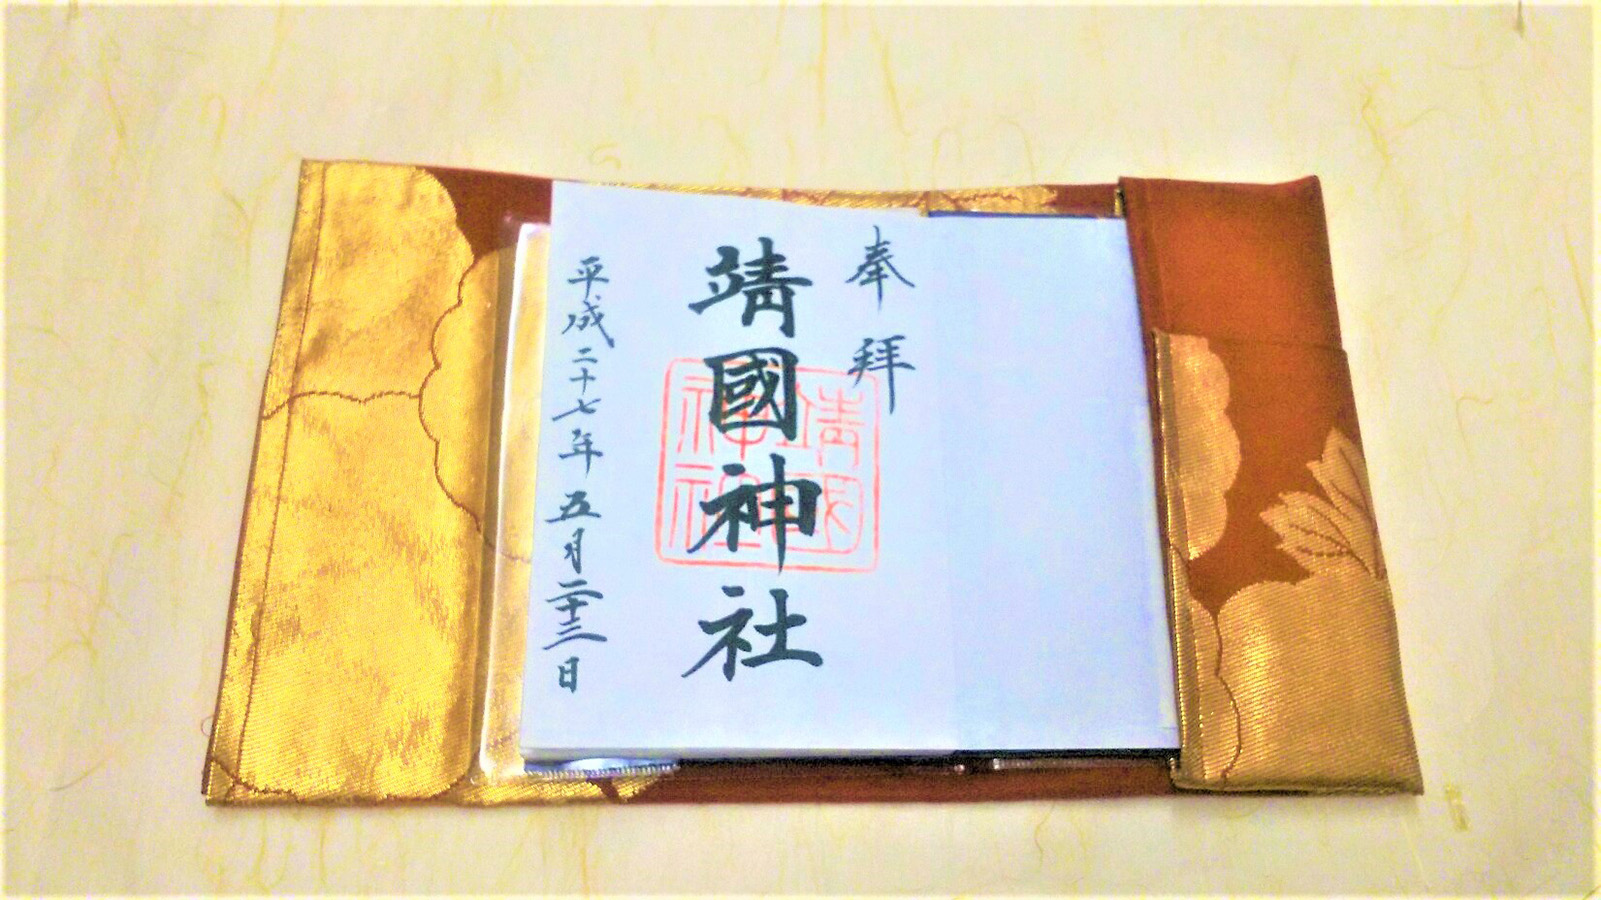 奉拜
靖國神社
靖國神社
平成二十七年五月二十三日